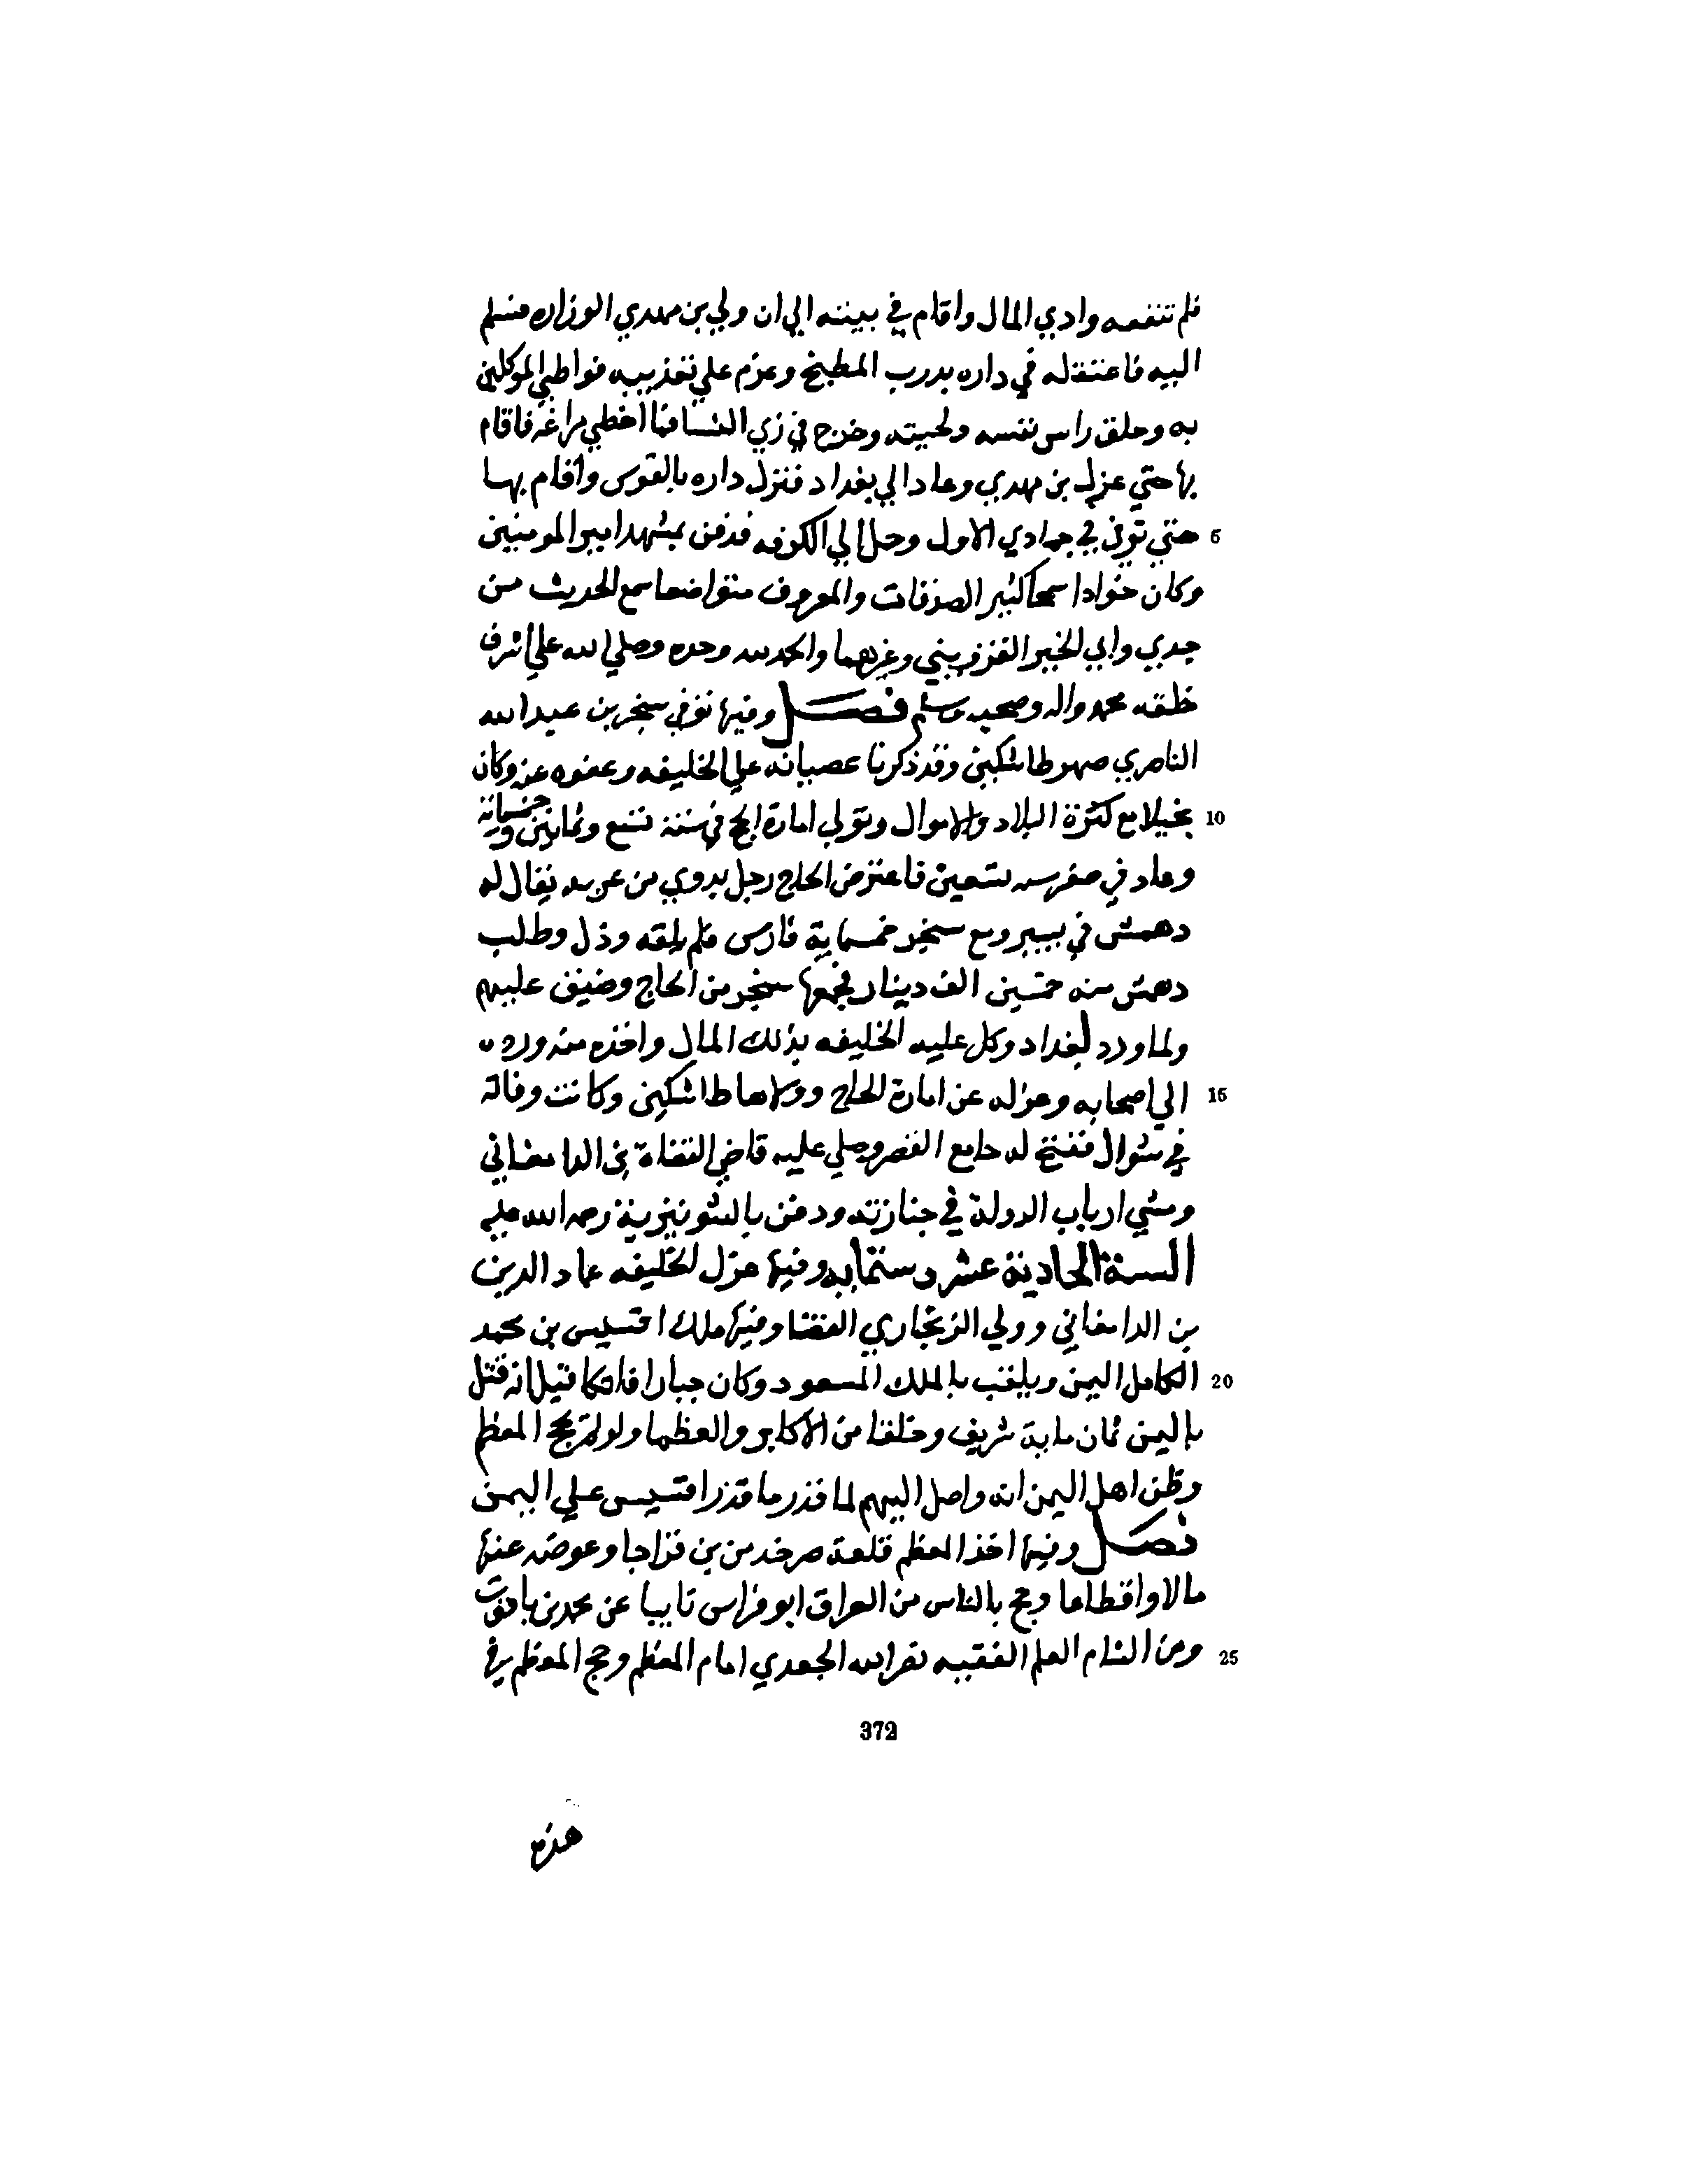 فلم تنفعه وادي المال واقام في بيته الي ان ولي بن مهدي الوزاره فسلم
اليه فاعتقله في داره بدرب المطبخ وعزم علي تعذيبه فواطي الموكلين
به وحلق راس نفسه ولحيته وخرج في زي النسا فما اخطي مراغه فاقام
بها حتي عزل بن مهدي وعاد الي بغداد فنزل داره بالقوس واقام بها
5 حتي توفي في جمادي الاول وحمل الي الكوفه فدفن بمشهد امير المومنين
وكان جوادا سمحا كثير الصدقات والمعروف متواضعا سمع الحديث من
جدي وابي الخير القزويني وغيرهما والحمد لله وحده وصلي الله علي اشرف
خلقه محمد واله وصحبه وسلم فصل وفيها توفي سنجر بن عبد الله
الناصري صهر طاشتكين وقد ذكرنا عصيانه علي الخليفه وعفوه عنه وكان
10 بخيلا مع كثرة البلاد والاموال وتولي امارة الحج في سنة تسع وثمانين وخمسمائة
وعاد في صفر سنه تسعين فاعترض الحاج رجل بدوي من عربه يقال له
دهمش في يسير ومع سنجر خمسماية فارس فلم يلقه وذل وطلب
دهمش منه خمسين الف دينار فجمعها سنجر من الحاج وضيق عليهم
ولما ورد بغداد وكل عليه الخليفه بذلك المال واخذه منه ورده
15 الي اصحابه وعزله عن امارة الحاج وولاها طاشتكين وكانت وفاته
في شوال ففتح له جامع القصر وصلي عليه قاضي القضاة بن الدامغاني
ومشي ارباب الدولة في جنازته ودفن بالشونيزية رحمه الله عليه
السنة الحادية عشر وستمايه وفيها عزل الخليفه عماد الدين
بن الدامغاني وولي الزنجاري القضا وفيها ملك اقسيس بن محمد
20 الكامل اليمن ويلقب بالملك المسعود وكان جبارا فاتكا قيل انه قتل
باليمن ثمان ماية شريف وخلقا من الاكابر والعظما ولو لم يحج المعظم
وظن اهل اليمن انه واصل اليهم لما قدر ما قدر اقسيس علي اليمن
فصل وفيها اخذ المعظم قلعة صرخد من بن قراجا وعوضه عنها
مالا واقطاعا وحج بالناس من العراق ابو فراس نايبا عن محمد بن ياقوت
25 ومن الشام العلم الفقيه نصر الله الجعدي امام المعظم وحج المعظم في
372
هذه